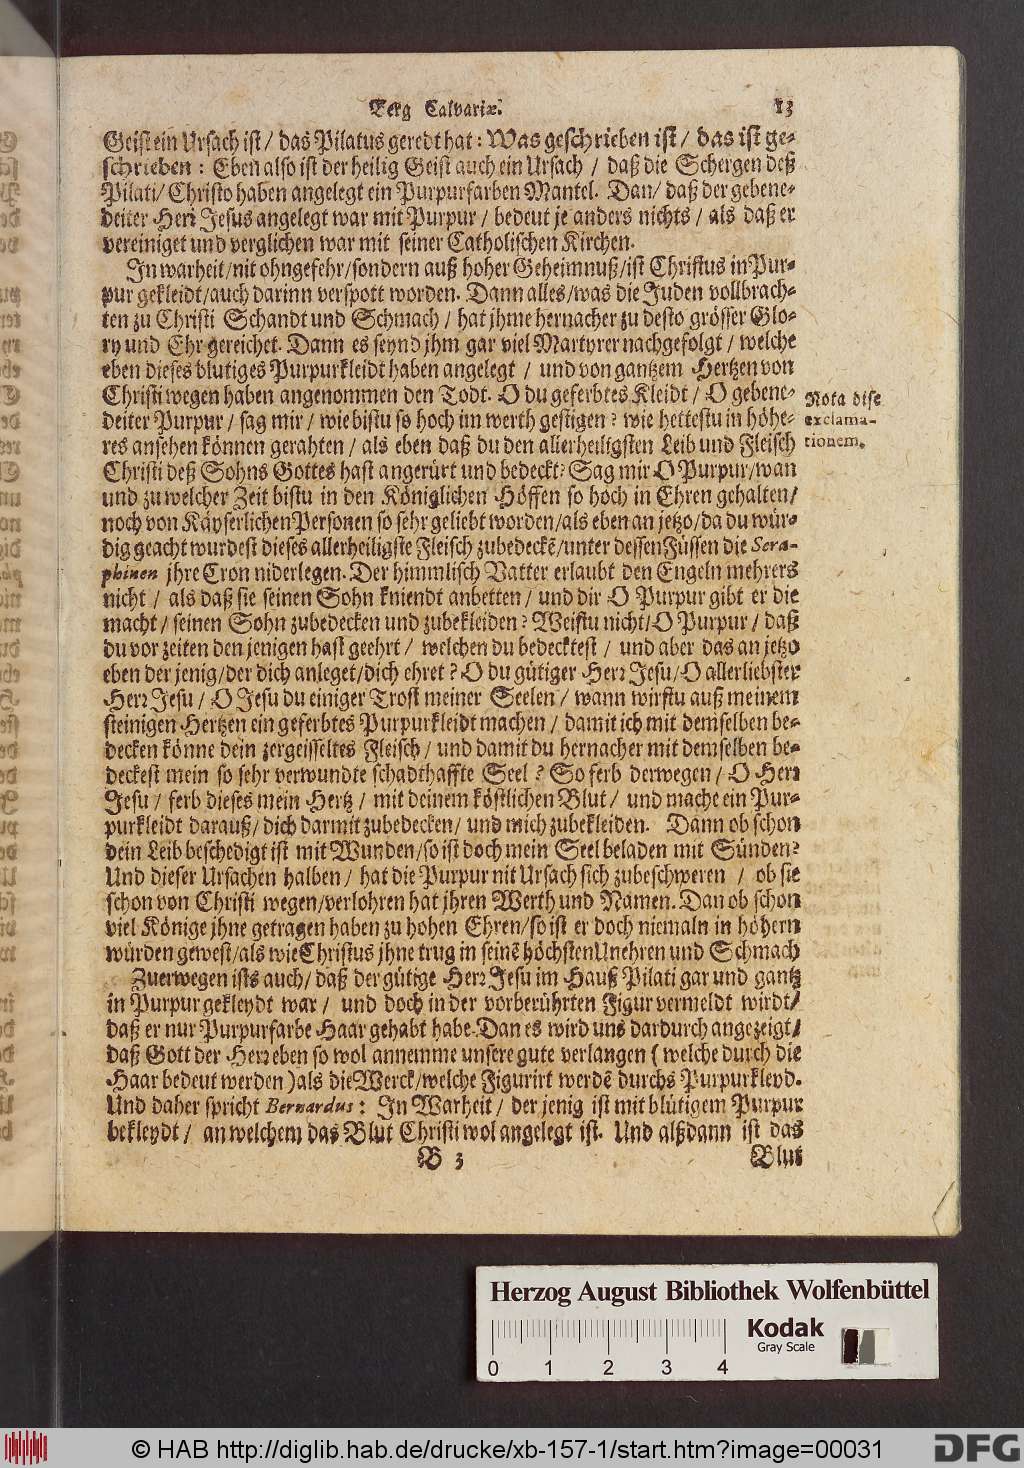 Berg Calvariæ. 13
Geist ein Ursach ist / das Pilatus geredt hat: Was geschrieben ist / das ist ge-
schrieben: Eben also ist der heilig Geist auch ein Ursach / daß die Schergen deß
Pilati / Christo haben angelegt ein Purpurfarben Mantel. Dan / daß der gebene-
deiter Herr Jesus angelegt war mit Purpur / bedeut je anders nichts / als daß er
vereiniget und verglichen war mit seiner Catholischen Kirchen.
In warheit / nit ohngefehr / sondern auß hoher Geheimnuß / ist Christus in Pur-
pur gekleidt / auch darinn verspott worden. Dann alles / was die Juden vollbrach-
ten zu Christi Schandt und Schmach / hat jhme hernacher zu desto grösser Glo-
ry und Ehr gereichet. Dann es seynd jhm gar viel Martyrer nachgefolgt / welche
eben dieses blutiges Purpurkleidt haben angelegt / und von gantzem Hertzen von
Christi wegen haben angenommen den Todt. O du geferbtes Kleidt / O gebene-
deiter Purpur / sag mir / wie bistu so hoch im werth gestigen? wie hettestu in höhe-
res ansehen können gerahten / als eben daß du den allerheiligsten Leib und Fleisch
Christi deß Sohns Gottes hast angerürt und bedeckt? Sag mir O Purpur / wan
und zu welcher Zeit bistu in den Königlichen Höffen so hoch in Ehren gehalten /
noch von Käyserlichen Personen so sehr geliebt worden / als eben an jetzo / da du wür-
dig geacht wurdest dieses allerheiligste Fleisch zubedeckē / unter dessen Füssen die Sera-
phinen jhre Cron niderlegen. Der himmlisch Vatter erlaubt den Engeln mehrers
nicht / als daß sie seinen Sohn kniendt anbetten / und dir O Purpur gibt er die
macht / seinen Sohn zubedecken und zubekleiden? Weistu nicht / O Purpur / daß
du vor zeiten den jenigen hast geehrt / welchen du bedecktest / und aber das an jetzo
eben der jenig / der dich anleget / dich ehret? O du gütiger Herr Jesu / O allerliebster
Herr Jesu / O Jesu du einiger Trost meiner Seelen / wann wirstu auß meinem
steinigen Hertzen ein geferbtes Purpurkleidt machen / damit ich mit demselben be-
decken könne dein zergeisseltes Fleisch / und damit du hernacher mit demselben be-
deckest mein so sehr verwundte schadthaffte Seel? So ferb derwegen / O Herr
Jesu / ferb dieses mein Hertz / mit deinem köstlichen Blut / und mache ein Pur-
purkleidt darauß / dich darmit zubedecken / und mich zubekleiden. Dann ob schon
dein Leib beschedigt ist mit Wunden / so ist doch mein Seel beladen mit Sünden?
Und dieser Ursachen halben / hat die Purpur nit Ursach sich zubeschweren / ob sie
schon von Christi wegen / verlohren hat jhren Werth und Namen. Dan ob schon
viel Könige jhne getragen haben zu hohen Ehren / so ist er doch niemaln in höhern
würden gewest / als wie Christus jhne trug in seinē höchsten Unehren und Schmach
Zuerwegen ists auch / daß der gütige Herr Jesu im Hauß Pilati gar und gantz
in Purpur gekleydt war / und doch in der vorberührten Figur vermeldt wirdt /
daß er nur Purpurfarbe Haar gehabt habe. Dan es wird uns dardurch angezeigt /
daß Gott der Herr eben so wol annemme unsere gute verlangen (welche durch die
Haar bedeut werden) als die Werck / welche Figurirt werdē durchs Purpurkleyd.
Und daher spricht Bernardus: In Warheit / der jenig ist mit blütigem Purpur
bekleydt / an welchem das Blut Christi wol angelegt ist. Und alßdann ist das
B 3 Blut
Nota dise
exclama-
tionem.
Herzog August Bibliothek Wolfenbüttel
Kodak
Gray Scale
0 1 2 3 4
© HAB http://diglib.hab.de/drucke/xb-157-1/start.htm?image=00031
DFG